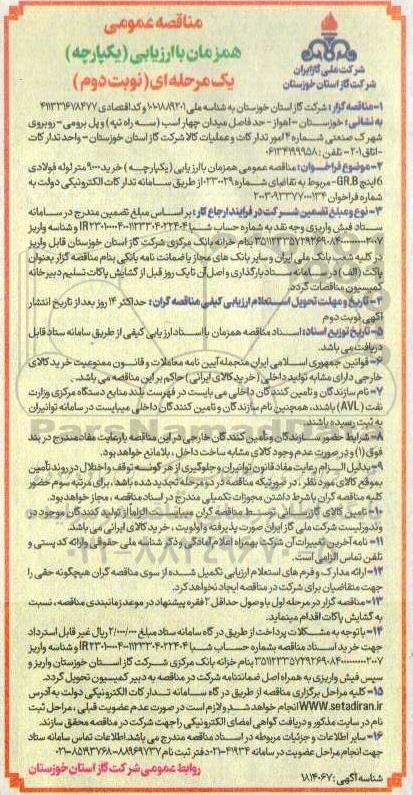 مناقصه عمومی
همزمان با ارزیابی (یکپارچه)
یک مرحله ای (نوبت دوم)
شرکت ملی گاز ایران
شرکت گاز استان خوزستان
۱-مناقصه گزار: شرکت گاز استان خوزستان به شناسه ملی ۱۰۱۰۱۸۸۹۲۰۱ و کد اقتصادی ۴۱۱۳۳۱۶۷۸۴۷۷
به نشانی: خوزستان – اهواز - حد فاصل میدان چهار اسب (سه راه تپه) و پل برومی- روبروی
شهرک صنعتی شماره ۴ امور تدارکات و عملیات کالا شرکت گاز استان خوزستان – واحد تدارکات
-اتاق ۲۰۱- تلفن: ۰۶۱۳۴۱۹۹۹۵۸
۲-موضوع فراخوان: مناقصه عمومی همزمان با ارزیابی (یکپارچه) خرید ۹۰۰۰ متر لوله فولادی
6 اینچ GR.B- مربوط به تقاضای شماره ۰۲۳۰۰۲۹ از طریق سامانه تدارکات الکترونیکی دولت به
شماره فراخوان ۲۰۰۳۰۹۳۳۷۷۰۰۰۱۳۴
۳-نوع و مبلغ تضمین شرکت در فرایند ارجاع کار: بر اساس مبلغ تضمین مندرج در سامانه
ستاد فیش واریزی وجه نقد به شماره حساب شبا
بنام خزانه بانک مرکزی شرکت گاز استان خوزستان قابل واریز
در کلیه شعب بانک ملی ایران و سایر بانک های مجاز یا ضمانت نامه بانکی بنام مناقصه گزار بعنوان
پاکت (الف) در سامانه ستاد بارگذاری و اصل آن تا یک روز قبل از گشایش پاکات تسلیم دبیرخانه
کمیسیون مناقصات گردد.
۴-تاریخ و مهلت تحویل استعلام ارزیابی کیفی مناقصه گران: حداکثر ۱۴ روز بعد از تاریخ انتشار
آگهی نوبت دوم
۵-تاریخ توزیع اسناد: اسناد مناقصه همزمان با اسناد ارزیابی کیفی از طریق سامانه ستاد قابل
دریافت می باشد.
۶-قوانین جمهوری اسلامی ایران منجمله آیین نامه معاملات و قانون ممنوعیت خرید کالای
خارجی دارای مشابه تولید داخلی (خرید کالای ایرانی) حاکم بر این مناقصه می باشد.
۷-نام سازندگان و تامین کنندگان داخلی می بایست در فهرست بلند منابع دستگاه مرکزی وزارت
نفت (AVL) باشند، همچنین نام سازندگان و تامین کنندگان داخلی میبایست در سامانه توانیران
به ثبت رسیده باشند.
۸-شرایط حضور سازندگان و تامین کنندگان خارجی در این مناقصه با رعایت مفاد مندرج در بند
فوق (۱) و در صورت عدم وجود کالای مشابه ساخت داخل، بلامانع خواهد بود.
۹-بدلیل الزام رعایت مفاد قانون توانیران و جلوگیری از هر گونه توقف و اختلال در روند تأمین
بموقع کالای مورد نظر، در صورتیکه مناقصه در دو مرحله تجدید شده باشد، برای مرتبه سوم حضور
کلیه مناقصه گران با شرط داشتن مجوزات تکمیلی مندرج در اسناد مناقصه، مجاز خواهد بود.
۱۰-تامین کالای گازرسانی توسط مناقصه گران میبایست الزاماً از تولید کنندگان موجود در
وندورلیست شرکت ملی گاز ایران صورت پذیرفته و اولویت، خرید کالای ایرانی می باشد.
۱۱-نامه آخرین تغییرات آن شرکت بهمراه اعلام آمادگی و ذکر شناسه ملی حقوقی و ارائه کد پستی و
تلفن تماس الزامی است.
۱۲-ارائه مدارک و فرم های استعلام ارزیابی تکمیل شده از سوی مناقصه گران هیچگونه حقی را
جهت متقاضیان برای شرکت در مناقصه ایجاد نخواهد کرد.
۱۳-مناقصه گزار در مرحله اول با وصول حداقل ۲ فقره پیشنهاد در موعد زمانبندی مناقصه، نسبت
به گشایش پاکات اقدام مینماید.
۱۴-با توجه به مشکلات پرداخت از طریق درگاه سامانه ستاد مبلغ ۲/۰۰۰/۰۰۰ ریال غیر قابل استرداد
جهت خرید اسناد مناقصه بشماره حساب شبا
بنام خزانه بانک مرکزی شرکت گاز استان خوزستان واریز و
سپس فیش واریزی به همراه اصل ضمانتنامه شرکت در مناقصه به دبیر کمیسیون تحویل گردد.
۱۵-کلیه مراحل برگزاری مناقصه از طریق درگاه سامانه تدارکات الکترونیکی دولت به آدرس
WWW.setadiran.ir انجام خواهد شد و لازم است در صورت عدم عضویت قبلی، مراحل ثبت
نام در سایت مذکور و دریافت گواهی امضای الکترونیکی را جهت شرکت در مناقصه محقق سازند.
۱۶-سایر اطلاعات و جزئیات مربوطه در اسناد مناقصه مندرج می باشد. اطلاعات تماس سامانه ستاد
جهت انجام مراحل عضویت در سامانه ۴۱۹۳۴-۰۲۱ دفتر ثبت نام ۸۸۹۶۹۷۳۷-۸۵۱۹۳۷۶۸-۰۲۱
روابط عمومی شرکت گاز استان خوزستان
شناسه آگهی: ۱۸۱۴۰۶۷